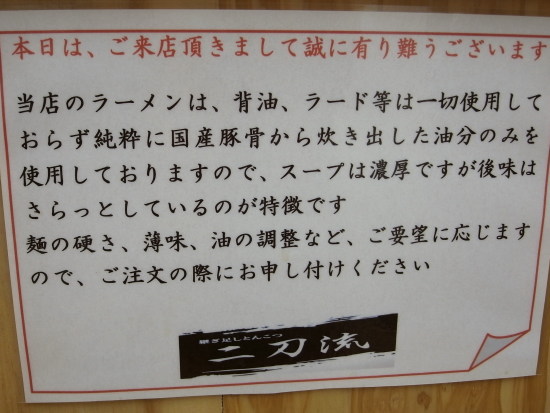 本日は、ご来店頂きまして誠に有り難うございます
当店のラーメンは、背油、ラード等は一切使用して
おらず純粋に国産豚骨から炊き出した油分のみを
使用しておりますので、スープは濃厚ですが後味は
さらっとしているのが特徴です
麺の硬さ、薄味、油の調整など、ご要望に応じます
ので、ご注文の際にお申し付けください
継ぎ足しとんこつ
二刀流